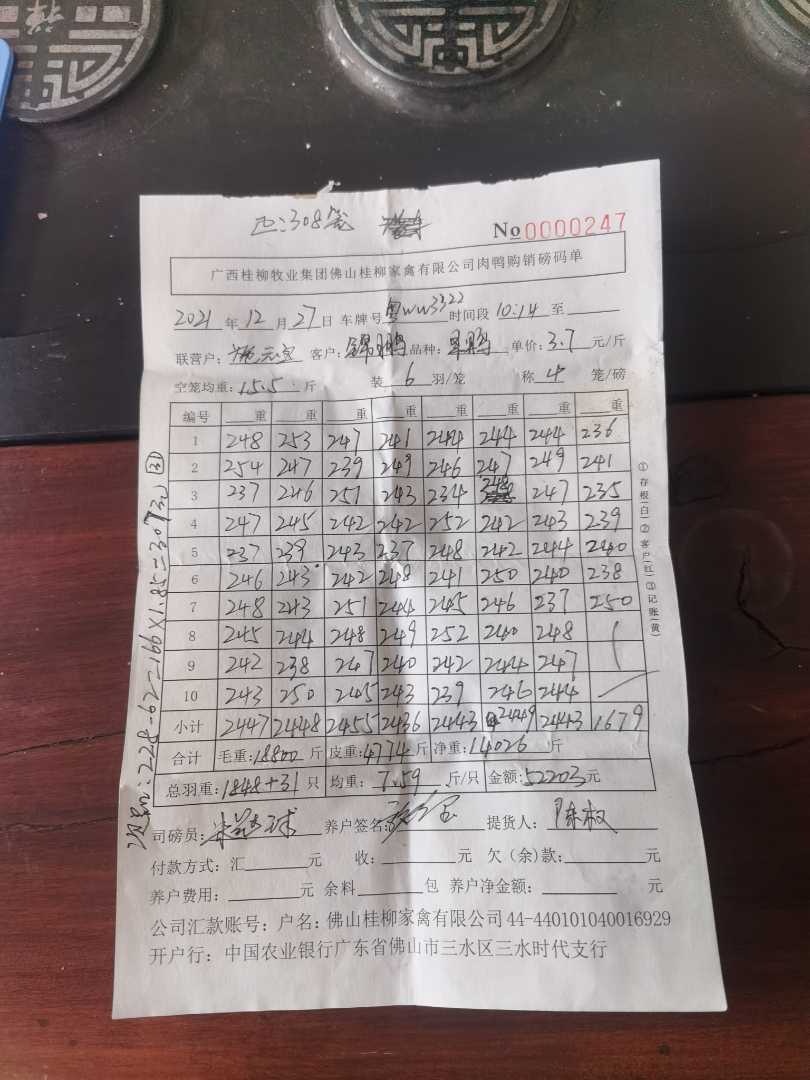 匹:308笼
No 0000247
广西桂柳牧业集团佛山桂柳家禽有限公司肉鸭购销磅码单
2021 年 12 月 27 日 车牌号 粤WW3322 时间段 10:14 至
联营户: 客户: 锦鹏 品种: 单价: 3.7 元/斤
空笼均重: 15.5 斤 装 6 羽/笼 称 4 笼/磅
编号 重 重 重 重 重 重 重 重
1 248 253 247 241 244 244 244 236
2 254 247 239 249 246 247 249 241
3 237 246 251 243 234 248 247 235
4 247 245 242 242 252 242 243 239
5 237 239 243 237 248 242 244 240
6 246 243 242 248 241 250 240 238
7 248 243 251 244 245 246 237 250
8 245 244 248 249 252 240 248
9 242 238 247 240 242 244 247
10 243 250 245 243 239 246 244
小计 2447 2448 2455 2436 2443 2449 2443 1679
合计 毛重: 18800 斤 皮重: 4774 斤 净重: 14026 斤
总羽重: 1848+31 只 均重: 7.59 斤/只 金额: 52203 元
司磅员: 养户签名: 提货人: 陈权
付款方式: 汇 元 收: 元 欠(余)款: 元
养户费用: 元 余料 包 养户净金额: 元
公司汇款账号: 户名: 佛山桂柳家禽有限公司 44-440101040016929
开户行: 中国农业银行广东省佛山市三水区三水时代支行
①存根(白)②客户(红)③记账(黄)
228-62=166×1.85=307元 31